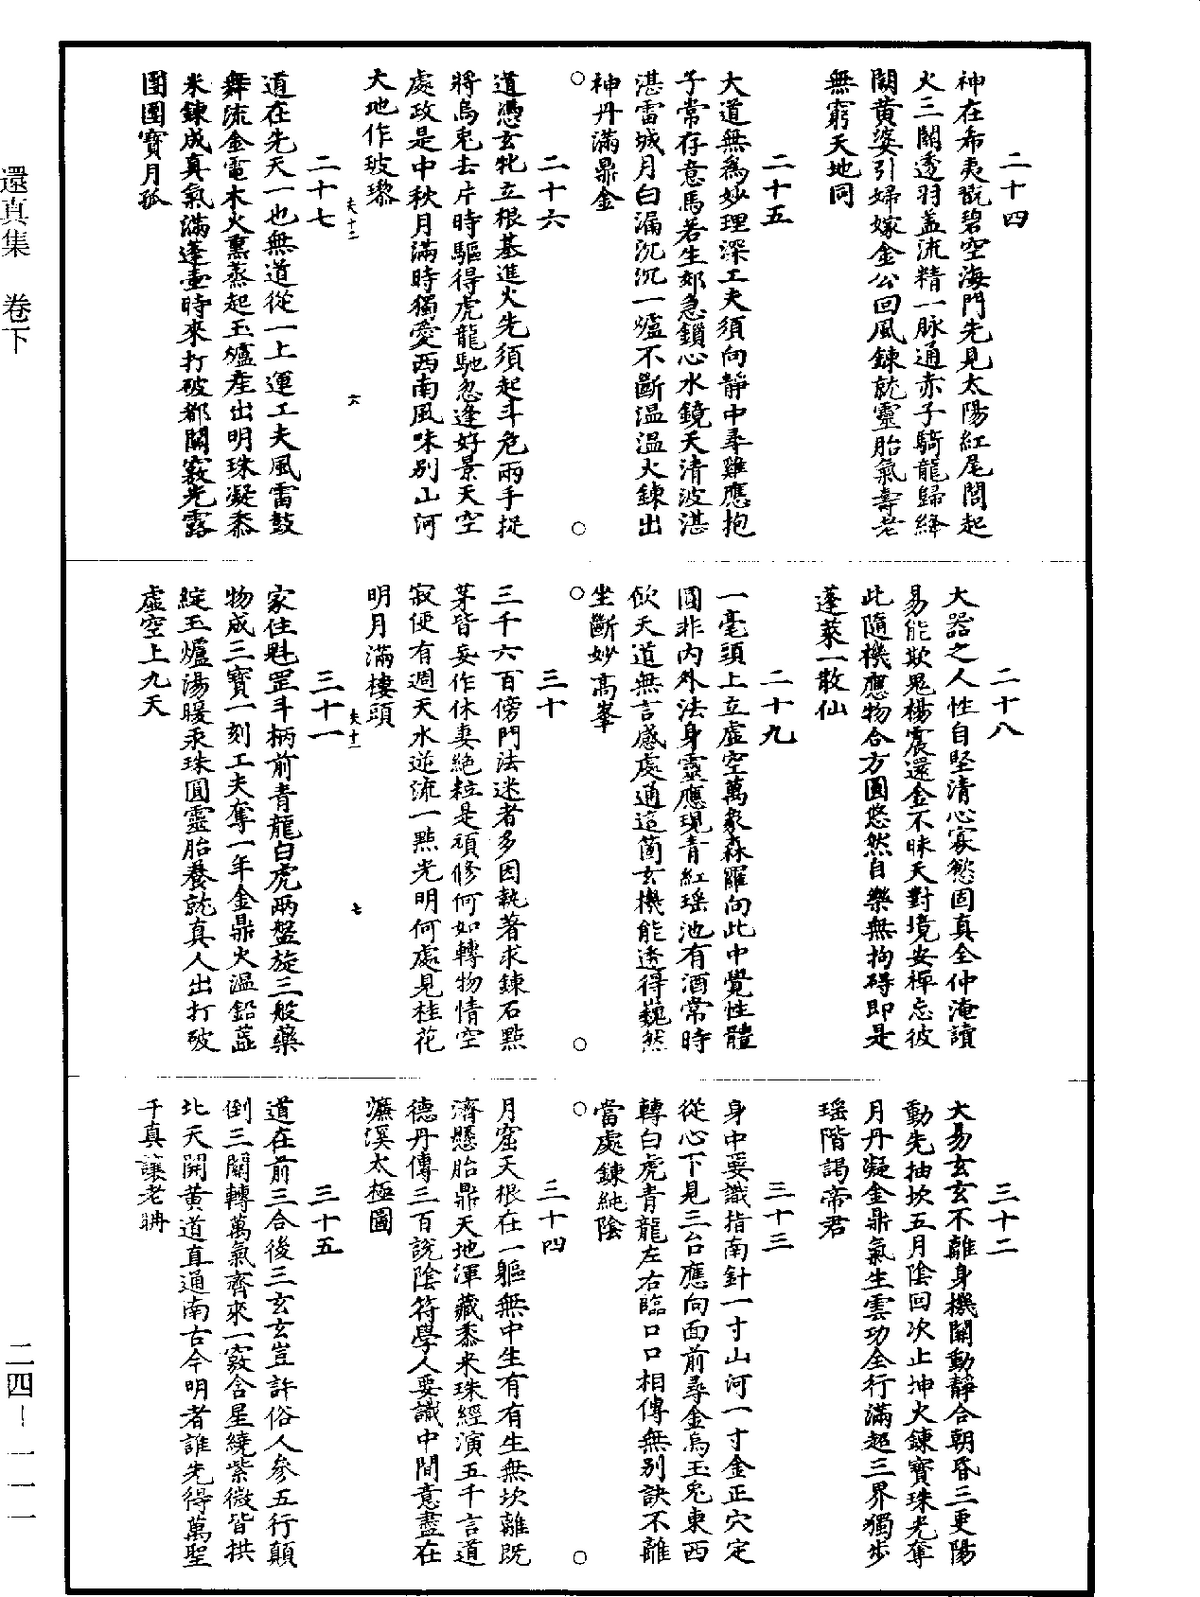 還真集　卷下
二四—一一一
二十四
神在希夷翫碧空海門先見太陽紅尾閭起
火三關透羽蓋流精一脉通赤子騎龍歸絳
闕黃婆引婦嫁金公回風鍊就靈胎氣壽老
無窮天地同
二十五
大道無為妙理深工夫須向靜中尋雞應抱
子常存意馬若生郊急鎖心水鏡天清波湛
湛雷城月白漏沉沉一爐不斷温温火鍊出
神丹滿鼎金
二十六
道憑玄牝立根基進火先須起斗危兩手捉
將烏兎去片時驅得虎龍馳忽逢好景天空
處政是中秋月滿時獨愛西南風味別山河
大地作玻瓈
夫十二　六
二十七
道在先天一也無道從一上運工夫風雷鼓
舞流金電木火熏蒸起玉爐産出明珠凝黍
米鍊成真氣滿蓬壺時來打破都關竅光露
團團寶月孤
二十八
大器之人性自堅清心寡慾固真全仲淹讀
易能欺鬼楊震還金不昧天對境安禪忘彼
此隨機應物合方圓悠然自樂無拘碍即是
蓬萊一散仙
二十九
一毫頭上立虛空萬象森羅向此中覺性體
圓非内外法身靈應現青紅瑶池有酒常時
飲天道無言感處通這箇玄機能透得巍然
坐斷妙高峯
三十
三千六百傍門法迷者多因執著求鍊石點
茅皆妄作休妻絶粒是頑修何如轉物情空
寂便有週天水逆流一點光明何處見桂花
明月滿樓頭
夫十二　七
三十一
家住魁罡斗柄前青龍白虎兩盤旋三般藥
物成三寶一刻工夫奪一年金鼎火温鉛蘂
綻玉爐湯暖汞珠圓靈胎養就真人出打破
虛空上九天
三十二
大易玄玄不離身機關動靜合朝昏三更陽
動先抽坎五月陰回次止坤火鍊寶珠光奪
月丹凝金鼎氣生雲功全行滿超三界獨步
瑶階謁帝君
三十三
身中要識指南針一寸山河一寸金正穴定
從心下見三台應向面前尋金烏玉兎東西
轉白虎青龍左右臨口口相傳無別訣不離
當處鍊純陰
三十四
月窟天根在一軀無中生有有生無坎離既
濟懸胎鼎天地渾藏黍米珠經演五千言道
德丹傳三百說陰符學人要識中間意盡在
濂溪太極圖
三十五
道在前三合後三玄玄豈許俗人參五行顛
倒三關轉萬氣齊來一竅含星繞紫微皆拱
北天開黃道直通南古今明者誰先得萬聖
千真讓老聃